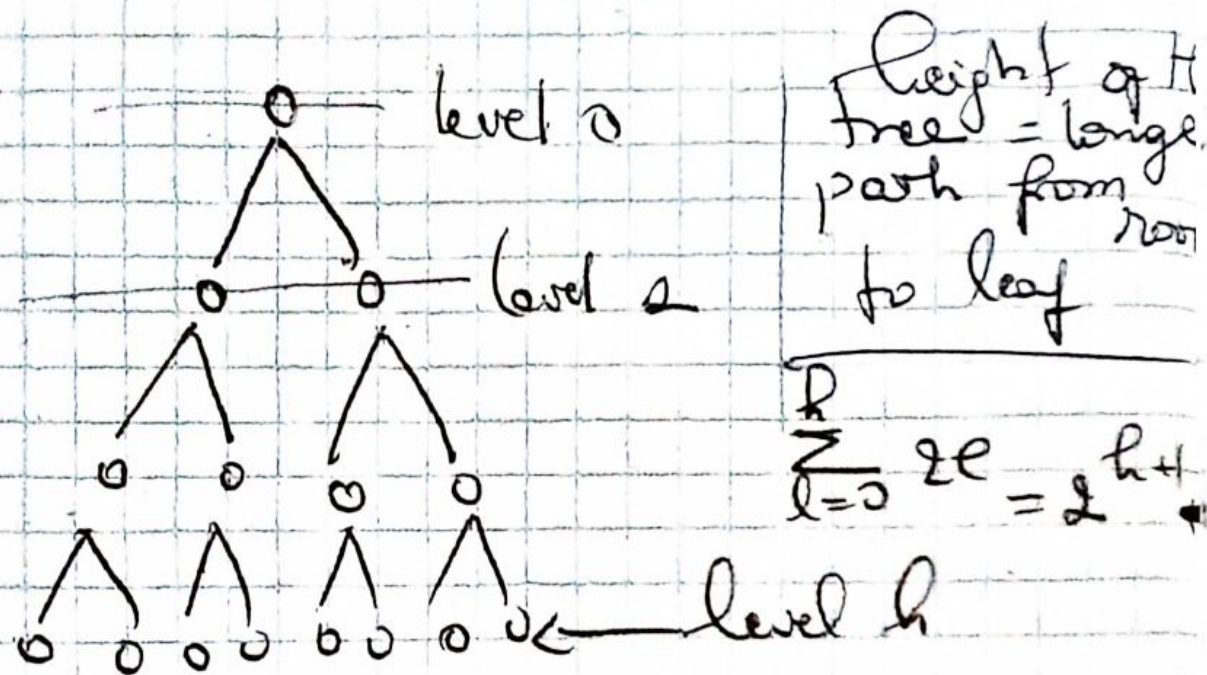 level 0
level 1
level h
height of
tree = longe
path from
to leaf
h
∑ 2l = 2 h+1
l=0